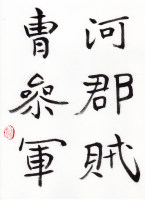 河郡賊
曹參軍